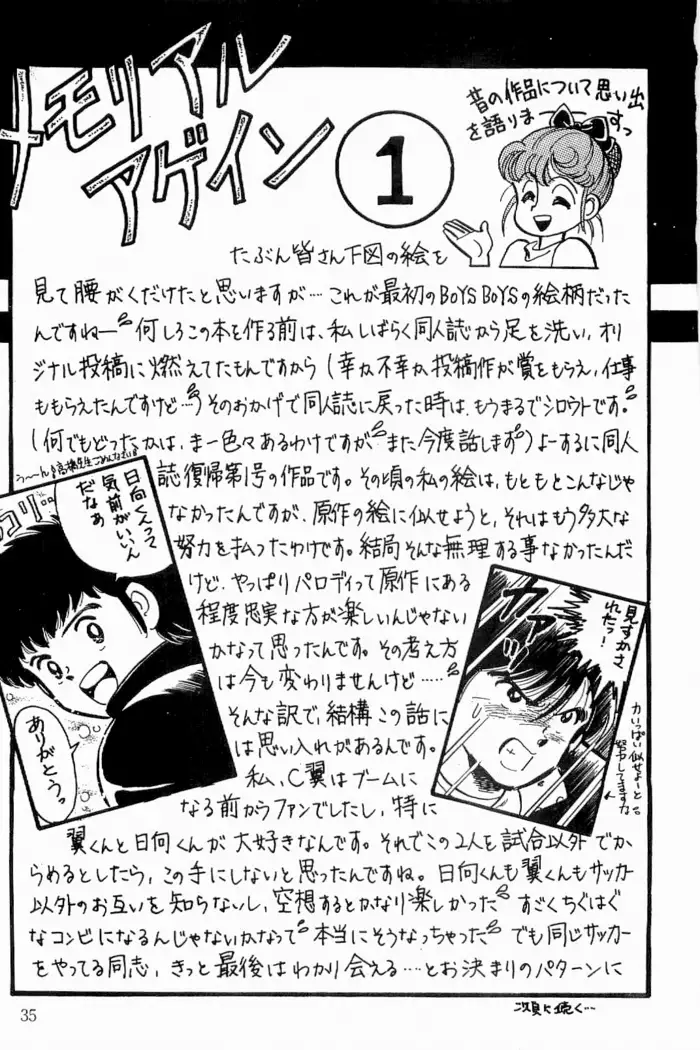 メモリアル
アゲイン
1
昔の作品について思い出
を語りま――すっ
たぶん皆さん下図の絵を
見て腰がくだけたと思いますが…これが最初のBOYS BOYSの絵柄だった
んですねー 何しろこの本を作る前は、私しばらく同人誌から足を洗い、オリ
ジナル投稿に燃えてたもんですから(幸か不幸か、投稿作が賞をもらえ、仕事
ももらえたんですけど…)そのおかげで同人誌に戻った時は、もうまるでシロウトです。
(何でもどったかは、まー色々あるわけですが また今度話します)よーするに同人
誌復帰第1号の作品です。その頃の私の絵は、もともとこんなじゃ
なかったんですが、原作の絵に似せようと、それはもう多大な
努力を払ったわけです。結局そんな無理する事なかったんだ
けど、やっぱりパロディって原作にある
程度忠実な方が楽しいんじゃない
かなって思ったんです。その考え方
は今も変わりませんけど……
そんな訳で、結構この話に
は思い入れがあるんです。
私、C翼はブームに
なる前からファンでしたし、特に
翼くんと日向くんが大好きなんです。それでこの2人を試合以外でか
らめるとしたら、この手にしないと思ったんですね。日向くんも翼くんもサッカー
以外のお互いを知らないし、空想するとかなり楽しかった すごくちぐはぐ
なコンビになるんじゃないかなって 本当にそうなっちゃった でも同じサッカー
をやってる同志、きっと最後はわかり会える…とお決まりのパターンに
う〜〜ん高橋先生ごめんなさい
日向くんって
気前がいいん
だなあ
コリ…
ありがとうっ
見すかさ
れたっ!
カアッ
力いっぱい似せよーと
努力してますな
次頁に続く…
35